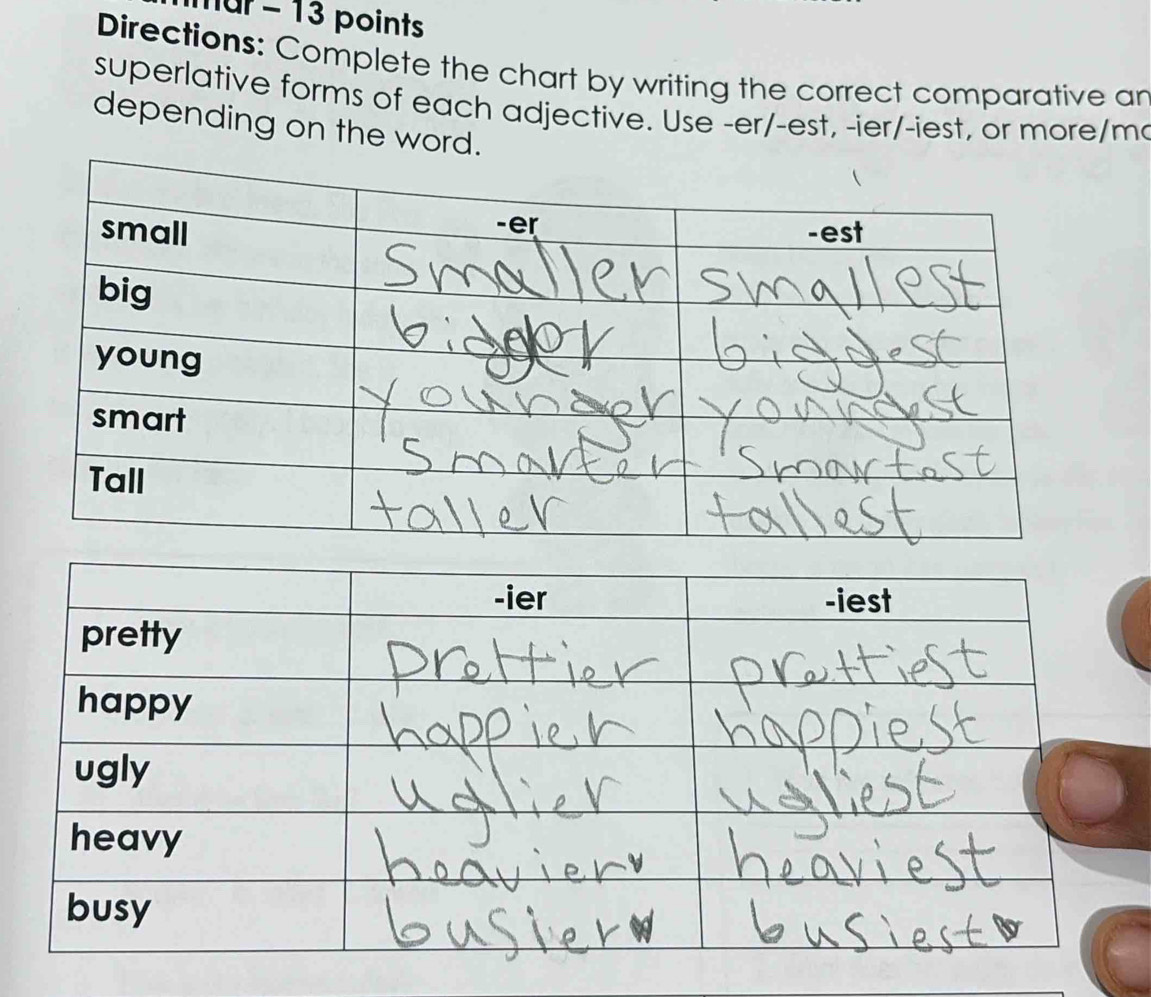 – 13 points
Directions: Complete the chart by writing the correct comparative
superlative forms of each adjective. Use -er/-est, -ier/-iest, or
depending on the word.
-er -est
small smaller smallest
big bigger biggest
young younger youngest
smart smarter smartest
Tall taller tallest
-ier -iest
pretty prettier prettiest
happy happier happiest
ugly uglier ugliest
heavy heavier heaviest
busy busier busiest